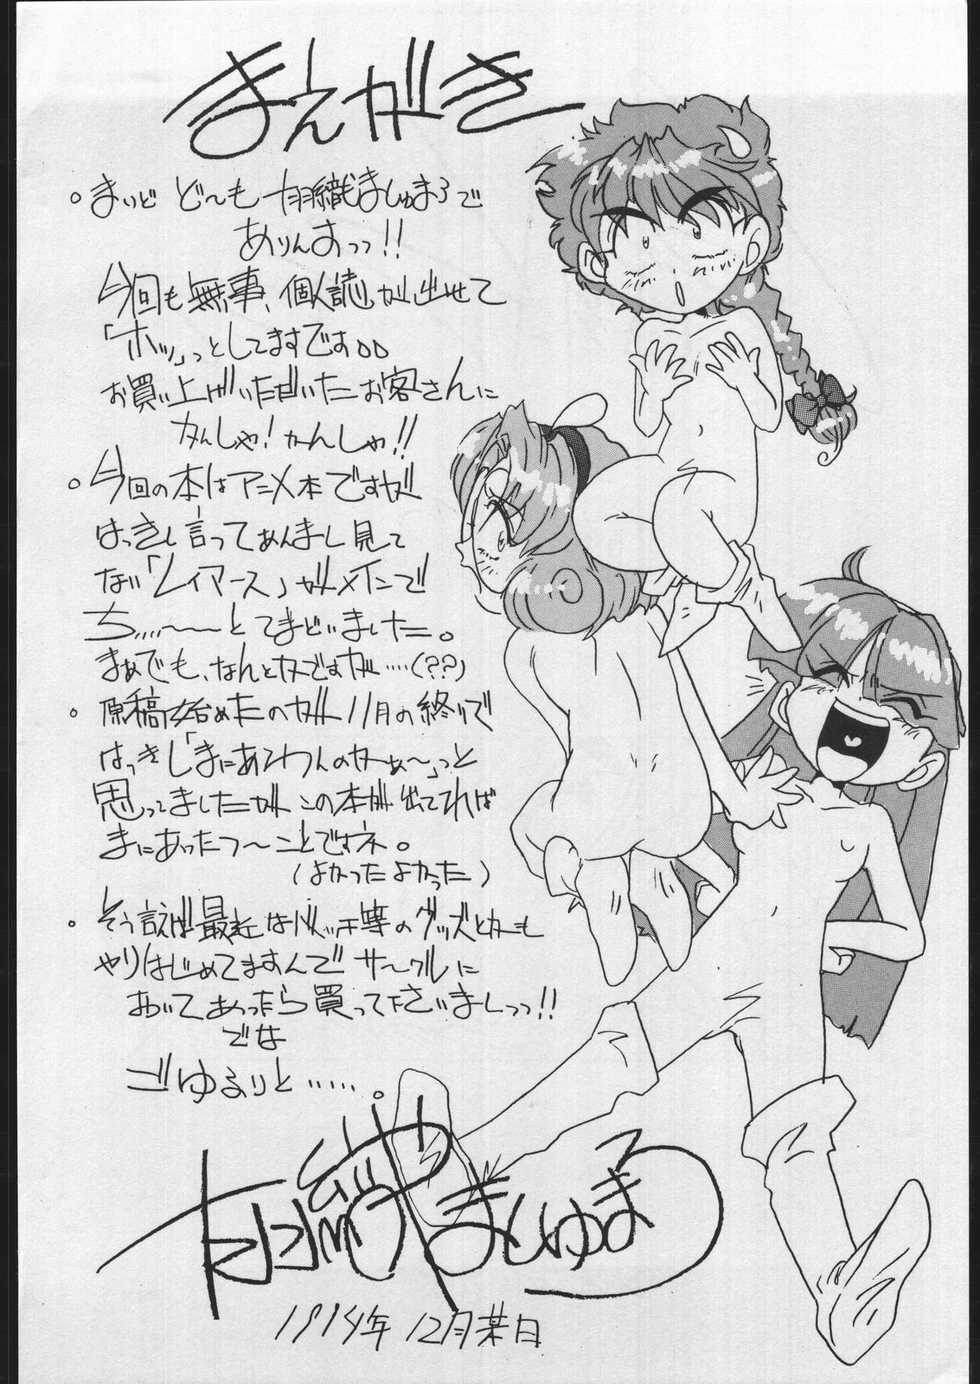 まえがき
。まいど ど〜も 羽織ましゅまろで
ありんすっっ!!
今回も無事、個人誌が出せて
「ホッ」っとしてますですDD
お買い上げいただいたお客さんに
かんしゃ!かんしゃ!!
。今回の本はアニメ本ですが
はっきし言ってあんまし見て
ない「レイアース」がメインで
ち....〜〜〜とてまどいました。
まぁでも、なんとかですが....(??)
。原稿始めたのが11月の終りで
はっきし「まにあわんのかーぁ〜」っと
思ってましたが この本が出てれば
まにあったつ〜ことですネ。
(よかったよかった)
。そう言えば最近はバッチ等のグッズとかも
やりはじめてますんで サークルに
おいてあったら買って下さいましっっ!!
では
ごゆるりと......。
羽織ましゅまろ
1994年 12月某日